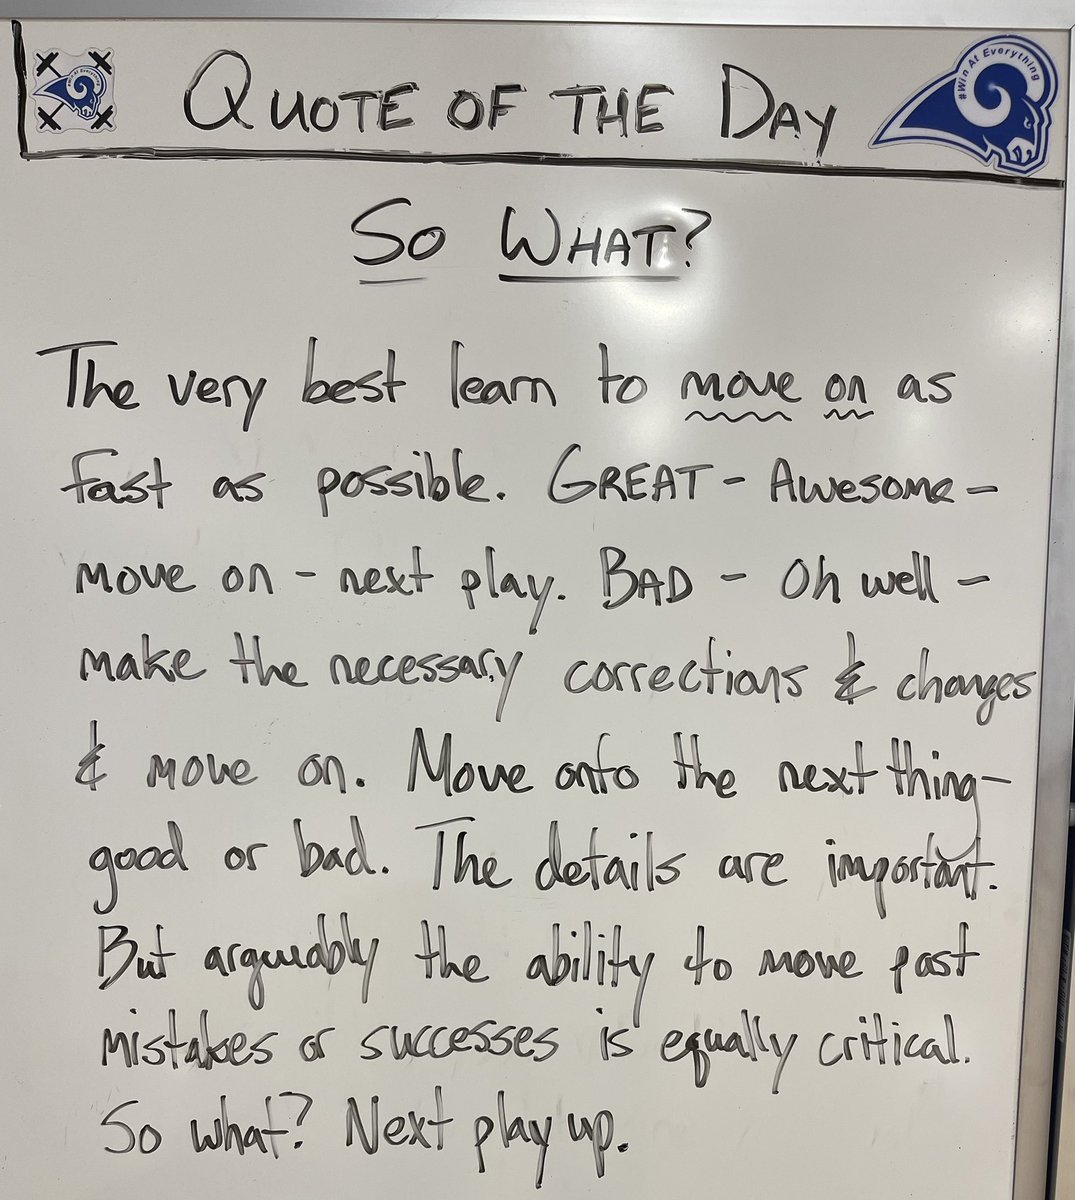 #Win At Everything
QUOTE OF THE DAY
#Win At Everything
SO WHAT?
The very best learn to move on as
fast as possible. GREAT - Awesome -
move on - next play. BAD - Oh well -
make the necessary corrections & changes
& move on. Move onto the next thing -
good or bad. The details are important.
But arguably the ability to move past
mistakes or successes is equally critical.
So what? Next play up.